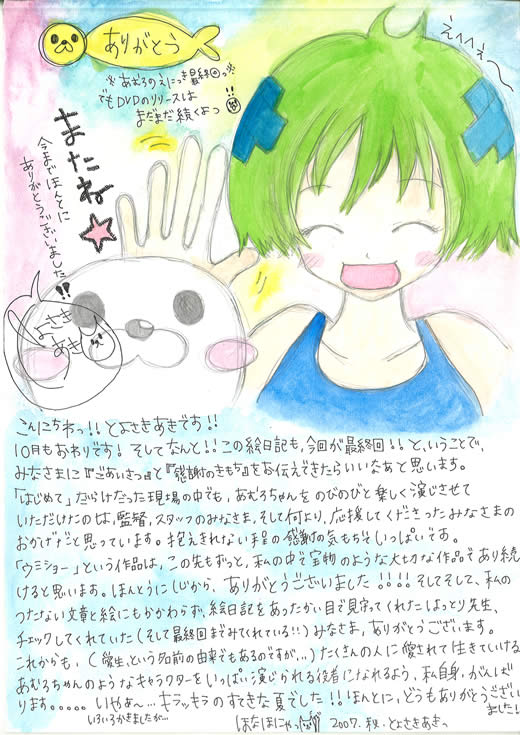 ありがとう
※あむろのえにっき最終回っ※
でもDVDのリリースは
まだまだ続くよっ!!
えへへぇ〜
またね
今までほんとに
ありがとうございました!!
とよさき
あき
こんにちわっ!!とよさきあきです!!
10月もおわりです!そしてなんと!!この絵日記も、今回が最終回!!と、いうことで、
みなさまに『ごあいさつ』と『感謝のきもち』をお伝えできたらいいなあと思います。
「はじめて」だらけだった現場の中でも、あむろちゃんをのびのびと楽しく演じさせて
いただけたのは、監督、スタッフのみなさま、そして何より、応援してくださったみなさまの
おかげだと思っています。抱えきれない程の感謝の気もちでいっぱいです。
「ウミショー」という作品は、この先もずっと、私の中で宝物のような大切な作品であり続
けると思います。ほんとうに心から、ありがとうございました!!!!そしてそして、私の
つたない文章と絵にもかかわらず、絵日記をあったかい目で見守ってくれたはっとり先生、
チェックしてくれていた(そして最終回までみてくれている!!)みなさま、ありがとうございます。
これからも、(愛生、という名前の由来でもあるのですが、..)たくさんの人に愛されて生きていける
あむろちゃんのようなキャラクターをいっぱい演じられる役者になれるよう、私自身、がんば
ります。。。。。いやぁ〜...キラッキラのすてきな夏でした!!ほんとに、どうもありがとうござい
ました!
いろいろかきましたが...
ほなほにゃっ
2007.秋.とよさきあきっ